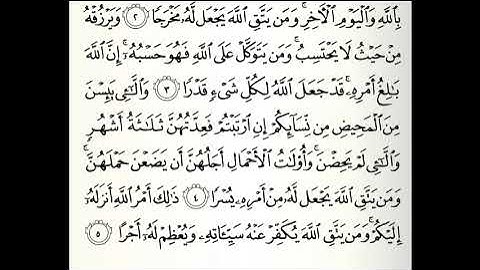 بِٱللَّهِ وَٱلْيَوْمِ ٱلْأَخِرِ ۚ وَمَن يَتَّقِ ٱللَّهَ يَجْعَل لَّهُۥ مَخْرَجًا ۝٢ وَيَرْزُقْهُ
مِنْ حَيْثُ لَا يَحْتَسِبُ ۚ وَمَن يَتَوَكَّلْ عَلَى ٱللَّهِ فَهُوَ حَسْبُهُۥٓ ۚ إِنَّ ٱللَّهَ
بَٰلِغُ أَمْرِهِۦ ۚ قَدْ جَعَلَ ٱللَّهُ لِكُلِّ شَىْءٍ قَدْرًا ۝٣ وَٱلَّٰٓـِٔى يَئِسْنَ
مِنَ ٱلْمَحِيضِ مِن نِّسَآئِكُمْ إِنِ ٱرْتَبْتُمْ فَعِدَّتُهُنَّ ثَلَٰثَةُ أَشْهُرٍ
وَٱلَّٰٓـِٔى لَمْ يَحِضْنَ ۚ وَأُو۟لَٰتُ ٱلْأَحْمَالِ أَجَلُهُنَّ أَن يَضَعْنَ حَمْلَهُنَّ ۚ
وَمَن يَتَّقِ ٱللَّهَ يَجْعَل لَّهُۥ مِنْ أَمْرِهِۦ يُسْرًا ۝٤ ذَٰلِكَ أَمْرُ ٱللَّهِ أَنزَلَهُۥٓ
إِلَيْكُمْ ۚ وَمَن يَتَّقِ ٱللَّهَ يُكَفِّرْ عَنْهُ سَيِّـَٔاتِهِۦ وَيُعْظِمْ لَهُۥٓ أَجْرًا ۝٥